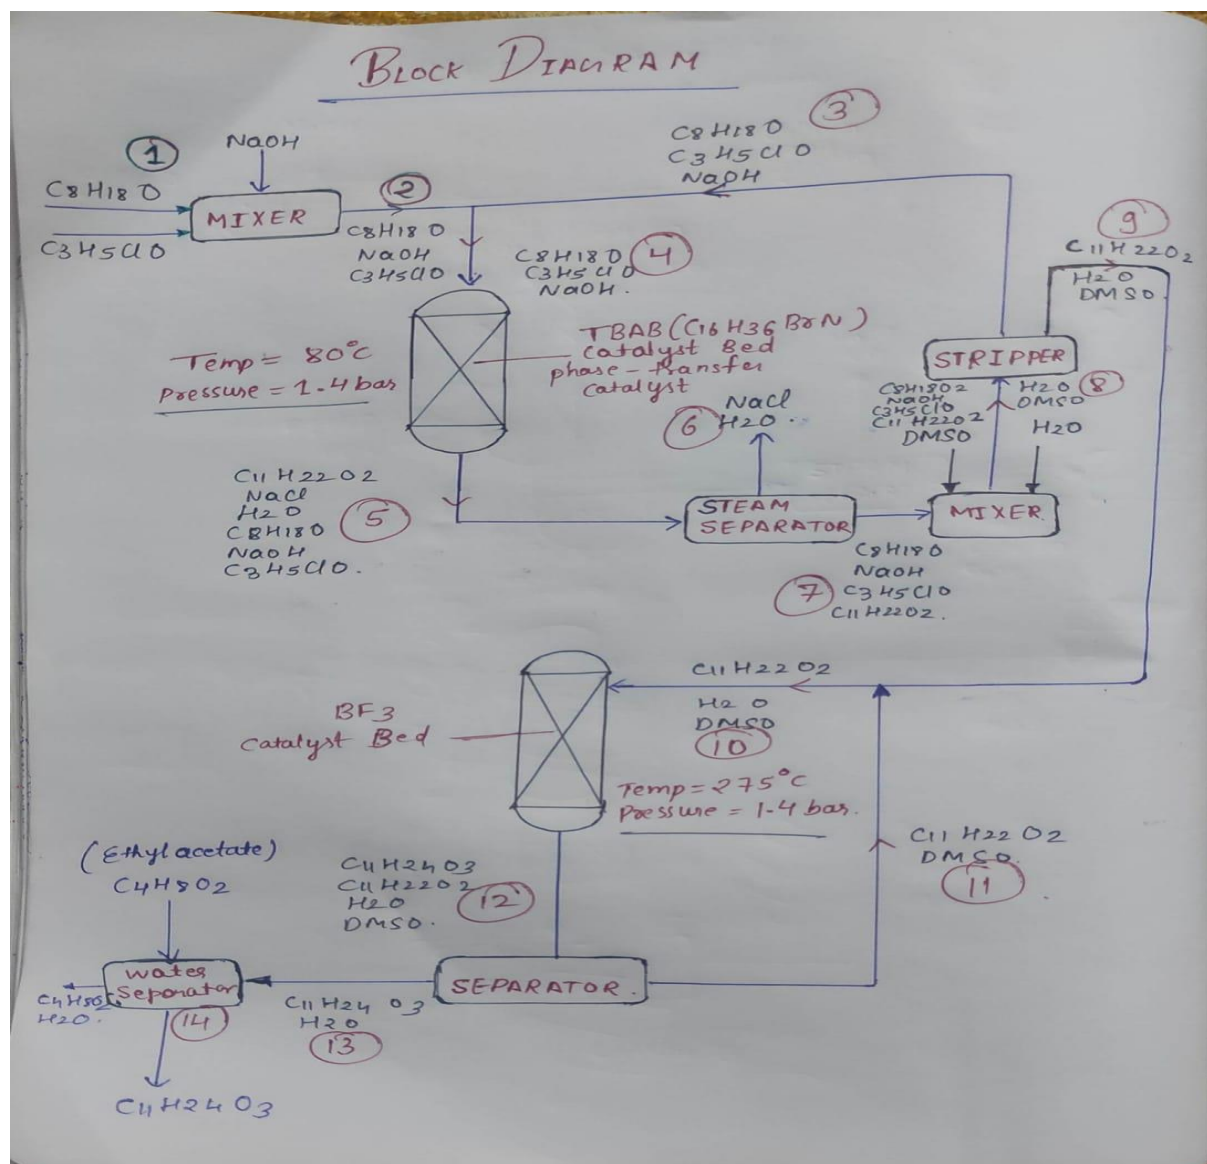 BLOCK DIAGRAM
1
NaOH
C8H18O
MIXER
C3H5ClO
2
C8H18O
NaOH
C3H5ClO
3
C8H18O
C3H5ClO
NaOH
4
C8H18O
C3H5ClO
NaOH.
9
C11H22O2
H2O
DMSO
Temp = 80°C
Pressure = 1-4 bar
TBAB (C16H36BrN)
Catalyst Bed
phase-transfer
catalyst
STRIPPER
C8H18O2
NaOH
C3H5ClO
C11H22O2
DMSO
H2O
DMSO
8
H2O
6
NaCl
H2O.
C11H22O2
NaCl
H2O
C8H18O
NaOH
C3H5ClO.
5
STEAM
SEPARATOR
MIXER.
7
C8H18O
NaOH
C3H5ClO
C11H22O2.
C11H22O2
H2O
DMSO
10
BF3
Catalyst Bed
Temp = 275°C
Pressure = 1-4 bar.
C11H22O2
DMSO.
11
(Ethyl acetate)
C4H8O2
C11H24O3
C11H22O2
H2O
DMSO.
12
Water
Separator
14
C4H8O2
H2O.
SEPARATOR.
C11H24O3
H2O
13
C11H24O3